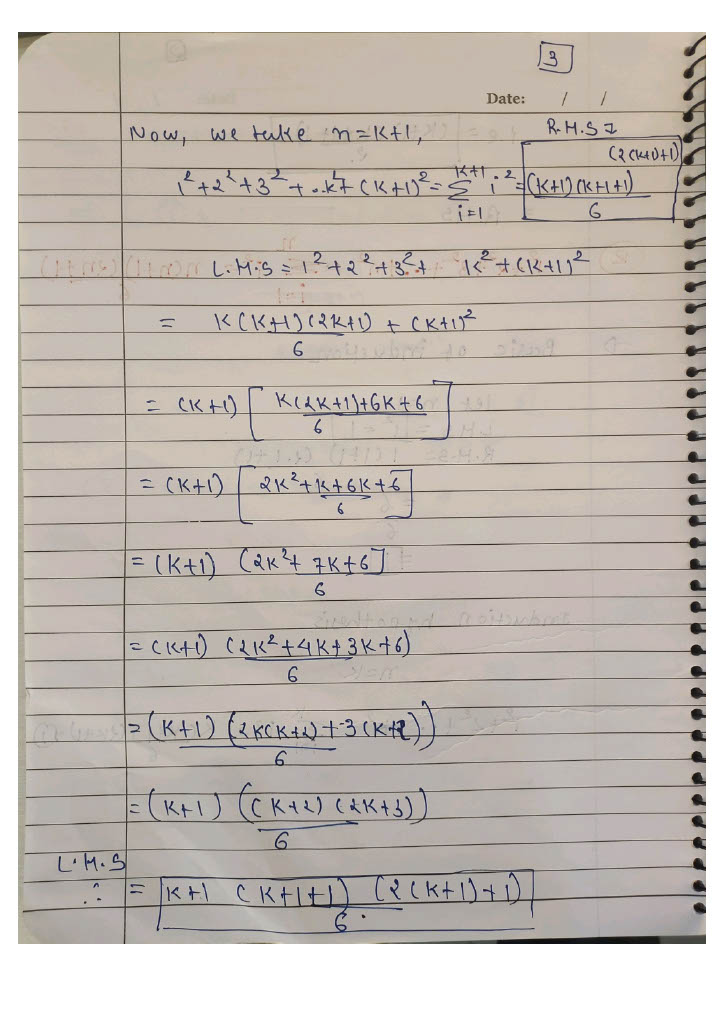 3
Date: / /
Now, we take n=K+1, R.H.S I
1²+2²+3²+..k²+(K+1)² = K+1 Σ i=1 i² = (K+1)(K+1+1)(2(K+1)+1) / 6
L.H.S = 1²+2²+3²+ K²+(K+1)²
= K(K+1)(2K+1) / 6 + (K+1)²
= (K+1) [ K(2K+1)+6K+6 / 6 ]
= (K+1) [ 2K²+K+6K+6 / 6 ]
= (K+1) (2K²+7K+6] / 6
= (K+1) (2K²+4K+3K+6) / 6
= (K+1) (2K(K+2)+3(K+2)) / 6
= (K+1) ((K+2)(2K+3)) / 6
L.H.S
∴ = K+1 (K+1+1) (2(K+1)+1) / 6.